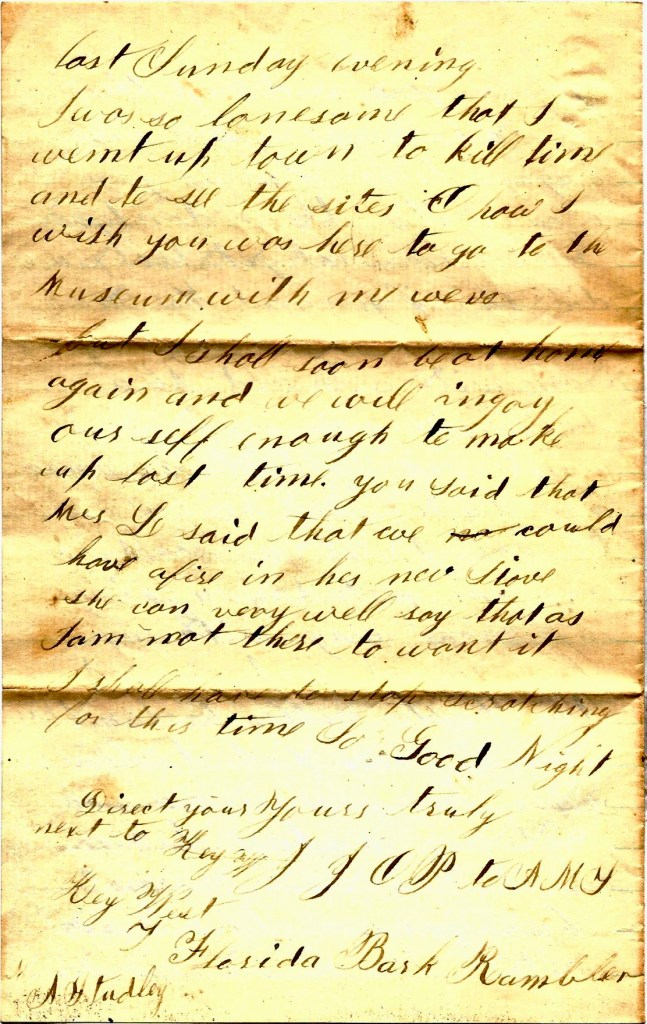 last Sunday evening
I was so lonesome that I
wemt up town to kill time
and to see the sites O how I
wish you was here to go to the
Museum with me
but I shall soon be at home
again and we will ingoy
our self enough to make
up lost time. you said that
Mrs L said that we could
have afire in her new Stove
she can very well say that as
I am not there to want it
I shall have to stop scratching
for this time So Good Night
Direct your Yours truly
next to Key W J J O P to A M Y
Key West
Florida Bark Rambler
A H tudley